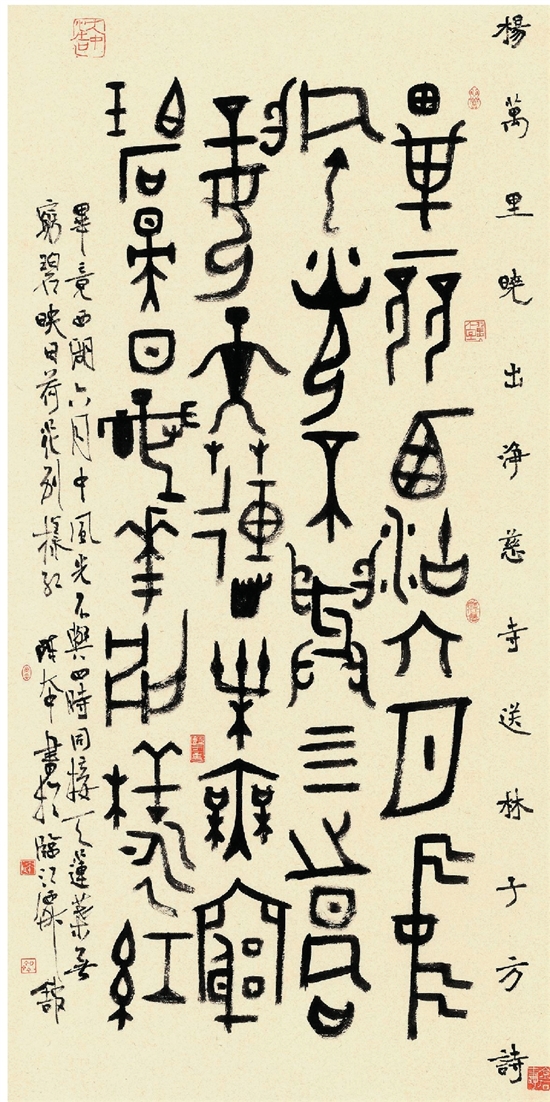 楊萬里曉出淨慈寺送林子方詩
畢竟西湖六月中
風光不與四時同
接天蓮葉無窮
碧映日荷花別樣紅
畢竟西湖六月中風光不與四時同接天蓮葉無
窮碧映日荷花別樣紅 書於臨江